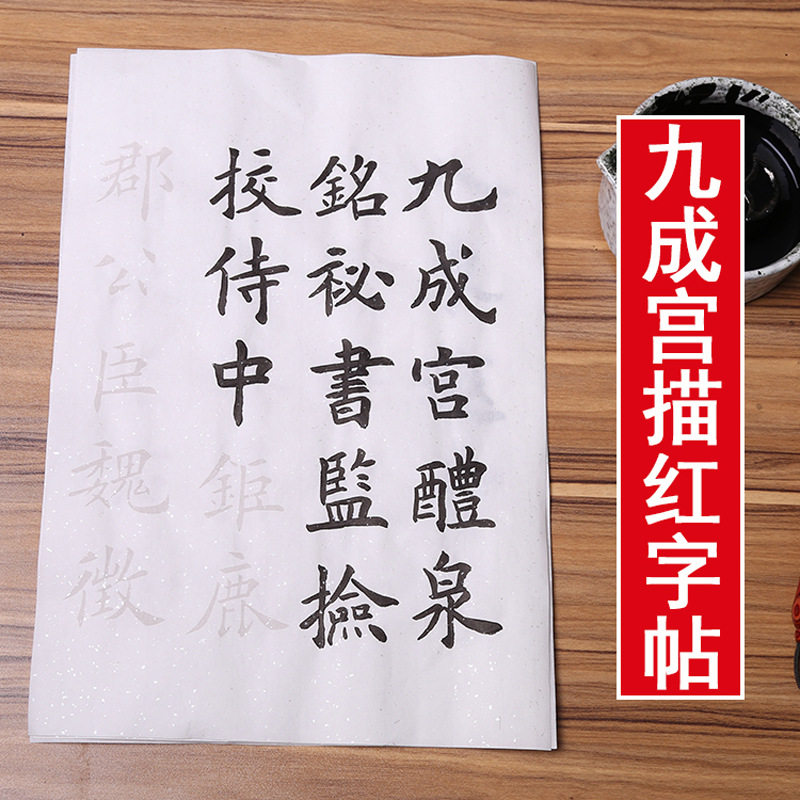 九成宫醴泉
銘祕書監撿
挍侍中鉅鹿
郡公臣魏徵
九成宫描红字帖